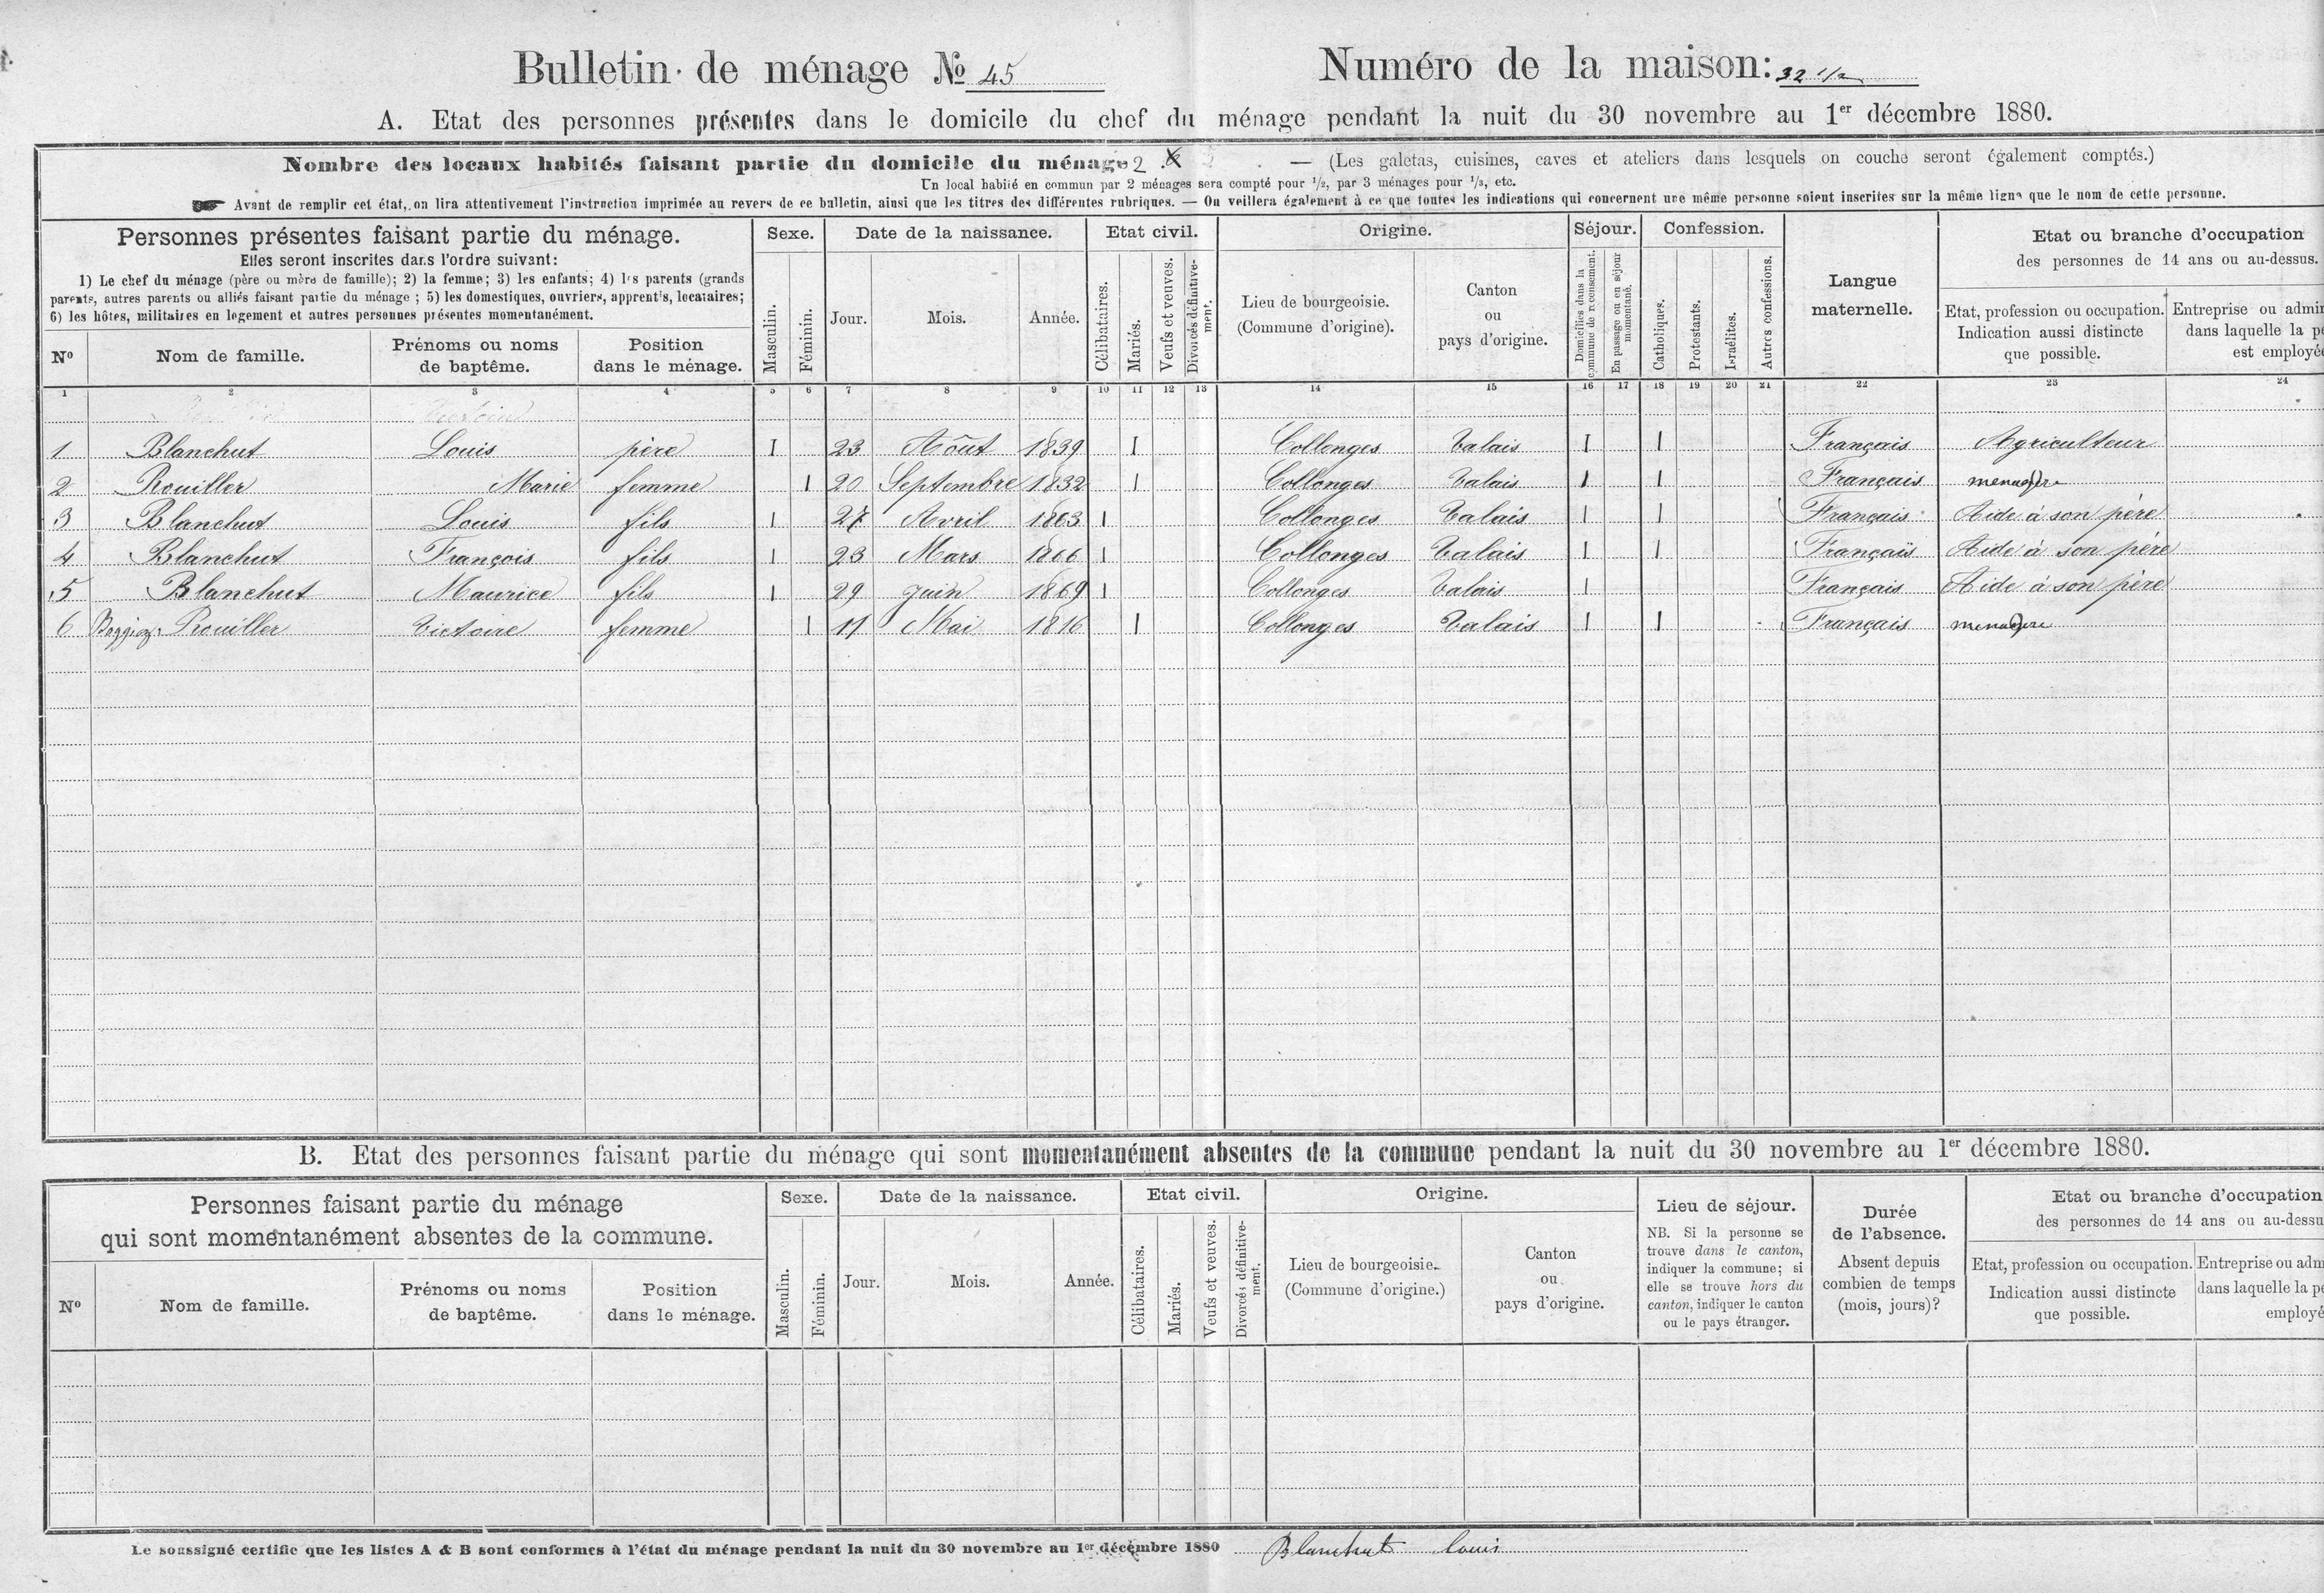 Bulletin de ménage № 45
Numéro de la maison: 32 1/2
A. Etat des personnes présentes dans le domicile du chef du ménage pendant la nuit du 30 novembre au 1er décembre 1880.
Nombre des locaux habités faisant partie du domicile du ménage 2 . — (Les galetas, cuisines, caves et ateliers dans lesquels on couche seront également comptés.)
Un local habité en commun par 2 ménages sera compté pour 1/2, par 3 ménages pour 1/3, etc.
Avant de remplir cet état, on lira attentivement l'instruction imprimée au revers de ce bulletin, ainsi que les titres des différentes rubriques. — On veillera également à ce que toutes les indications qui concernent une même personne soient inscrites sur la même ligne que le nom de cette personne.
Personnes présentes faisant partie du ménage.
Elles seront inscrites dans l'ordre suivant:
1) Le chef du ménage (père ou mère de famille); 2) la femme; 3) les enfants; 4) les parents (grands
parents, autres parents ou alliés faisant partie du ménage ; 5) les domestiques, ouvriers, apprentis, locataires;
6) les hôtes, militaires en logement et autres personnes présentes momentanément.
Nº
Nom de famille.
Prénoms ou noms
de baptême.
Position
dans le ménage.
Sexe.
Masculin.
Féminin.
Date de la naissance.
Jour.
Mois.
Année.
Etat civil.
Célibataires.
Mariés.
Veufs et veuves.
Divorcés définitive-
ment.
Origine.
Lieu de bourgeoisie.
(Commune d'origine).
Canton
ou
pays d'origine.
Séjour.
Domiciliés dans la
commune de recensement.
En passage ou en séjour
momentané.
Confession.
Catholiques.
Protestants.
Israélites.
Autres confessions.
Langue
maternelle.
Etat ou branche d'occupation
des personnes de 14 ans ou au-dessus.
Etat, profession ou occupation.
Indication aussi distincte
que possible.
Entreprise ou admin
dans laquelle la pe
est employée
1 2 3 4 5 6 7 8 9 10 11 12 13 14 15 16 17 18 19 20 21 22 23 24
1 Blanchut Louis père 1 23 Août 1839 1 Collonges Valais 1 1 Français Agriculteur
2 Rouiller Marie femme 1 20 Septembre 1832 1 Collonges Valais 1 1 Français menagère
3 Blanchut Louis fils 1 27 Avril 1863 1 Collonges Valais 1 1 Français Aide à son père
4 Blanchut François fils 1 23 Mars 1866 1 Collonges Valais 1 1 Français Aide à son père
5 Blanchut Maurice fils 1 29 Juin 1869 1 Collonges Valais 1 Français Aide à son père
6 Rouiller Victoire femme 1 11 Mai 1816 1 Collonges Valais 1 1 Français menagère
B. Etat des personnes faisant partie du ménage qui sont momentanément absentes de la commune pendant la nuit du 30 novembre au 1er décembre 1880.
Personnes faisant partie du ménage
qui sont momentanément absentes de la commune.
Nº
Nom de famille.
Prénoms ou noms
de baptême.
Position
dans le ménage.
Sexe.
Masculin.
Féminin.
Date de la naissance.
Jour.
Mois.
Année.
Etat civil.
Célibataires.
Mariés.
Veufs et veuves.
Divorcés définitive-
ment.
Origine.
Lieu de bourgeoisie.
(Commune d'origine.)
Canton
ou
pays d'origine.
Lieu de séjour.
NB. Si la personne se
trouve dans le canton,
indiquer la commune; si
elle se trouve hors du
canton, indiquer le canton
ou le pays étranger.
Durée
de l'absence.
Absent depuis
combien de temps
(mois, jours)?
Etat ou branche d'occupation
des personnes de 14 ans ou au-dessu
Etat, profession ou occupation.
Indication aussi distincte
que possible.
Entreprise ou adm
dans laquelle la pe
employé
Le soussigné certifie que les listes A & B sont conformes à l'état du ménage pendant la nuit du 30 novembre au 1er décembre 1880 Blanchut Louis